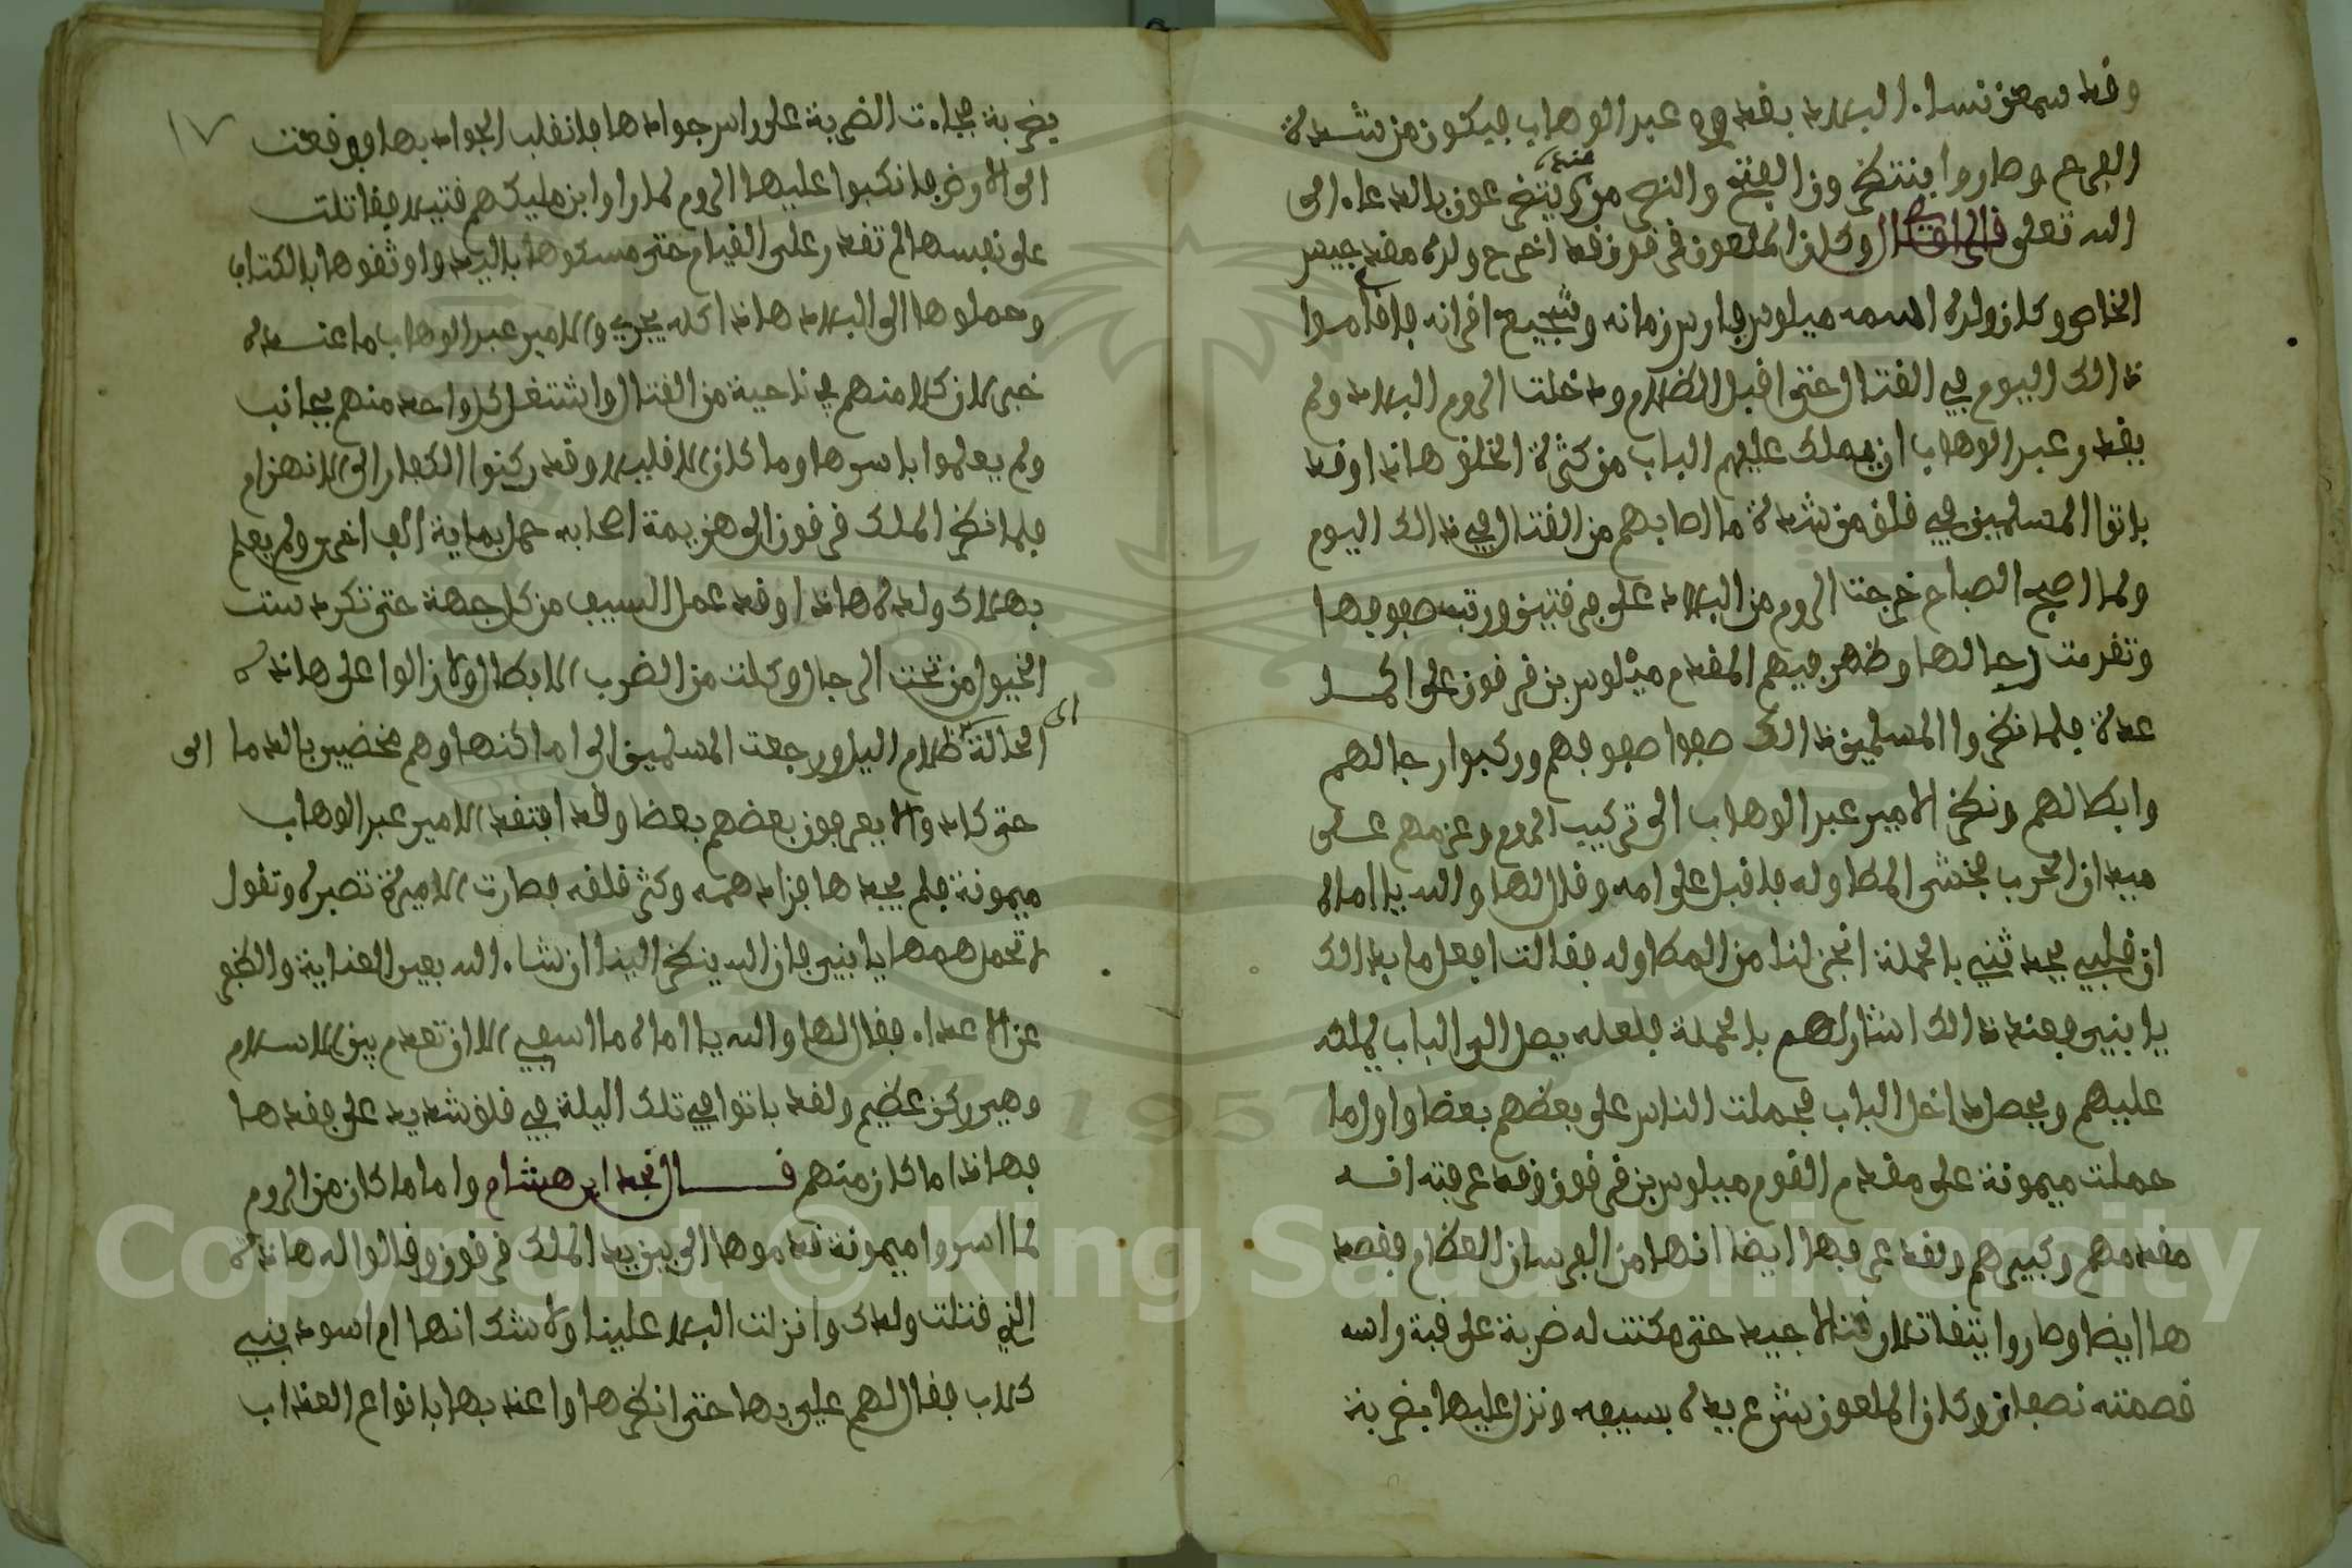 وقد سمعن نساء البلاد بقدوم عبد الوهاب فيكون من شدة
الفرح وصاروا ينتظرون الفتح والنصر من عند
الله تعلى قال الراوي وكان الملعون قرقون قد اخرج ولده مقدم جيس
الخاص وكان ولده اسمه ميلوس فارس زمانه وشجيع اقرانه فاقاموا
ذالك اليوم في القتال حتى اقبل الظلام ودخلت الروم البلاد ولم
يقدر عبد الوهاب ان يملك عليهم الباب من كثرة الخلق هاذا وقد
باتوا المسلمين في قلق من شدة ما اصابهم من القتال في ذالك اليوم
ولما اصبح الصباح خرجت الروم من البلاد على فرقتين ورتبت صفوفها
وتقدمت رجالها وظهر فيهم المقدم ميلوس بن قرقون على اكمل
عدة فلما نظروا المسلمين ذالك صفوا صفوفهم وركبوا رجالهم
وابطالهم ونظر الامير عبد الوهاب الى تركيب الروم وعزمهم على
ميدان الحرب فخشى المطاوله فاقبل على امه وقال لها والله يا اماه
ان قلبي يحدثني بالحملة اخير لنا من المطاوله فقالت افعل ما بدالك
يا بنير فعند ذالك اشار لهم بالحملة فلعله يصل الى الباب يملكه
عليهم ويحصل داخل الباب فحملت الناس على بعضهم بعضا واول ما
حملت ميمونة على مقدم القوم ميلوس بن قرقون وقد عرفته انه
مقدمهم وكبيرهم ولقد عرفها ايضا انها من الفرسان العظام فقصد
ها ايضا وصاروا يتقاتلان قتالا جيد حتى مكنت له ضربة على قبة راسه
قصمته نصفان وكان الملعون شرع يده بسيفه ونزل عليها بضربة
١٧
بضربة فجاءت الضربة على راس جوادها فانقلب الجواد بها ووقعت
الى الارض فانكبوا عليها الروم لما راوا ابن مليكهم قتيلا فقاتلت
على نفسها لم تقدر على القيام حتى مسكوها باليد واوثقوها بالكتاب
وحملوها الى البلاد هاذا كله يجري والامير عبد الوهاب ما عنده
خبر لان كلا منهم في ناحية من القتال واشتغل كل واحد منهم بجانب
ولم يعلموا باسرها وما كان الا قليلا وقد ركنوا الكفار الى الانهزام
فلما نظر الملك قرقون الى هزيمة اصحابه حمل بماية الف اخرى ولم يعلم
بهلاك ولده هاذا وقد عمل السيف من كل جهة حتى تكردست
الخيول من تحت الرجال وكلت من الضرب الابطال ولا زالوا على هاذه
الحالة الى ظلام اليل ورجعت المسلمين الى اماكنها وهم مخضبين بالدما الى
حتى كادوا لا يعرفون بعضهم بعضا وقد افتقد الامير عبد الوهاب
ميمونة فلم يجدها فزاد همه وكثر قلقه فصارت الاميرة تصبره وتقول
لا تحمل همها يا بنير فان الله ينظر الينا ان شاء الله بعين العناية والظفر
عن الاعداء فقال لها والله يا اماه ما اسفي الا ان تعدم بين الاسلام
وهي ركن عظيم ولقد باتوا في تلك اليلة في قلق شديد على فقدها
فهاذا ما كان منهم قال نجد ابن هشام واما ما كان من الروم
لما اسروا ميمونة قدموها الى بين يد الملك قرقون وقالوا له هاذه
التي قتلت ولدك وانزلت البلا علينا ولا شك انها ام اسود بني
كلاب فقال لهم علي بها حتى انظرها واعذبها بانواع العذاب